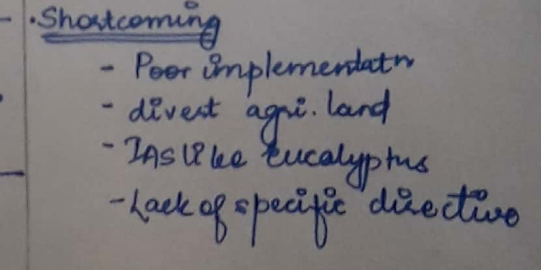 · Shortcoming
- Poor implementatn
- divert agri. land
- IAS like Eucalyptus
- Lack of specific directive